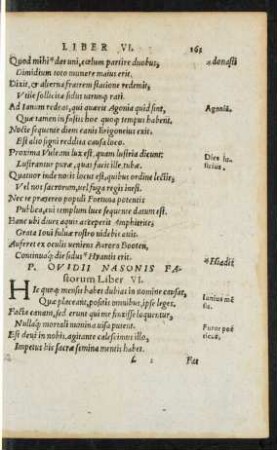 LIBER VI. 163
Quod mihi *das uni, cœlum partire duobus, *donasti
Dimidium toto munere maius erit.
Dixit, & alterna fratrem statione redemit,
Vtile sollicitæ sidus utrunq; rati.
Ad Ianum redeat, qui quærit Agonia quid sint, Agonia.
Quæ tamen in fastis hoc quoq; tempus habent.
Nocte sequente diem canis Erigoneius exit.
Est alio signi reddita causa loco.
Proxima Vulcani lux est, quam lustria dicunt:
Lustrantur puræ, quas facit ille, tubæ.
Quatuor inde notis locus est, quibus ordine lectis,
Vel mos sacrorum, uel fuga regis inest.
Nec te prætereo populi Fortuna potentis
Publica, cui templum luce sequente datum est.
Hanc ubi diues aquis acceperit Amphitrite:
Grata Ioui fuluæ rostra uidebis auis.
Auferet ex oculis ueniens Aurora Booten,
Continuaq; die sidus *Hyantis erit.
P. OVIDII NASONIS FA-
storum Liber VI.
HIc quoq; mensis habet dubias in nomine causas,
Quæ placeant, positis omnibus, ipse leges.
Facta canam, sed erunt qui me finxisse loquentur,
Nullaq; mortali numina uisa putent.
Est deus in nobis, agitante calescimus illo,
Impetus hic sacræ semina mentis habet.
Fac